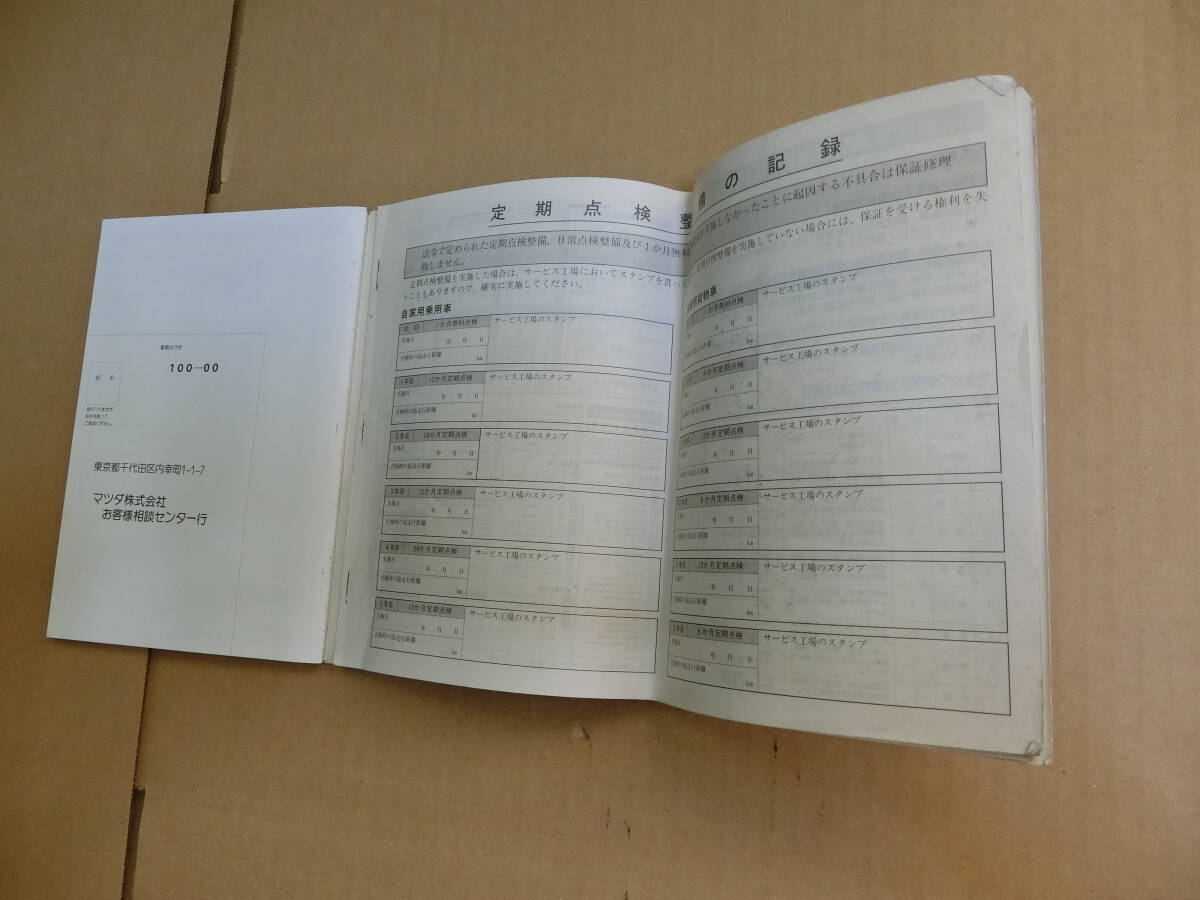 郵便はがき
100-00
切手
東京都千代田区内幸町1-1-7
マツダ株式会社
お客様相談センター行
定期点検整備の記録
法令で定められた定期点検整備、日常点検整備及び1か月無料
実施しなかったことに起因する不具合は保証修理
致しません。
定期点検整備を実施した場合は、サービス工場においてスタンプを貰っ
定期点検整備を実施していない場合には、保証を受ける権利を失
うこともありますので、確実に実施してください。
自家用乗用車
初回 1か月無料点検 サービス工場のスタンプ
実施日 年 月 日
点検時の総走行距離 km
1年目 12か月定期点検 サービス工場のスタンプ
実施日 年 月 日
点検時の総走行距離 km
2年目 24か月定期点検 サービス工場のスタンプ
実施日 年 月 日
点検時の総走行距離 km
3年目 12か月定期点検 サービス工場のスタンプ
実施日 年 月 日
点検時の総走行距離 km
4年目 24か月定期点検 サービス工場のスタンプ
実施日 年 月 日
点検時の総走行距離 km
5年目 12か月定期点検 サービス工場のスタンプ
実施日 年 月 日
点検時の総走行距離 km
貨物車
1か月無料点検 サービス工場のスタンプ
年 月 日
km
6か月定期点検 サービス工場のスタンプ
実施日 年 月 日
総走行距離 km
12か月定期点検 サービス工場のスタンプ
年 月 日
総走行距離 km
6か月定期点検 サービス工場のスタンプ
年 月 日
総走行距離 km
12か月定期点検 サービス工場のスタンプ
実施日 年 月 日
点検時の総走行距離 km
6か月定期点検 サービス工場のスタンプ
実施日 年 月 日
点検時の総走行距離 km